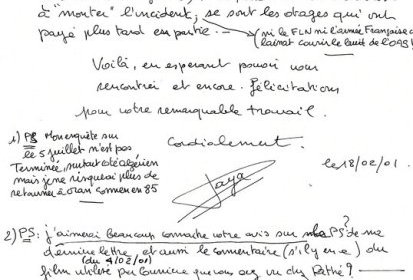 à "monter" l'incident, se sont les otages qui ont
payé plus tard en partie. (ni le FLN ni l'armée Française
courir le bruit de l'OAS)
Voilà, en esperant pouvoir vous
rencontrer et encore félicitations
pour votre remarquable travail.
Cordialement.
1) PS Mon enquête sur
le 5 juillet n'est pas
Terminée, surtout côté algérien
mais je ne risquerai plus de
retourner à oran comme en 85
le 18/02/01
2) PS: j'aimerai beaucoup connaitre votre avis sur PS? de ma
dernière lettre et aussi le comentaire (s'il y en a) du
(du 4/02/01)
film utilisé par que vous avez vu chez Pathé?